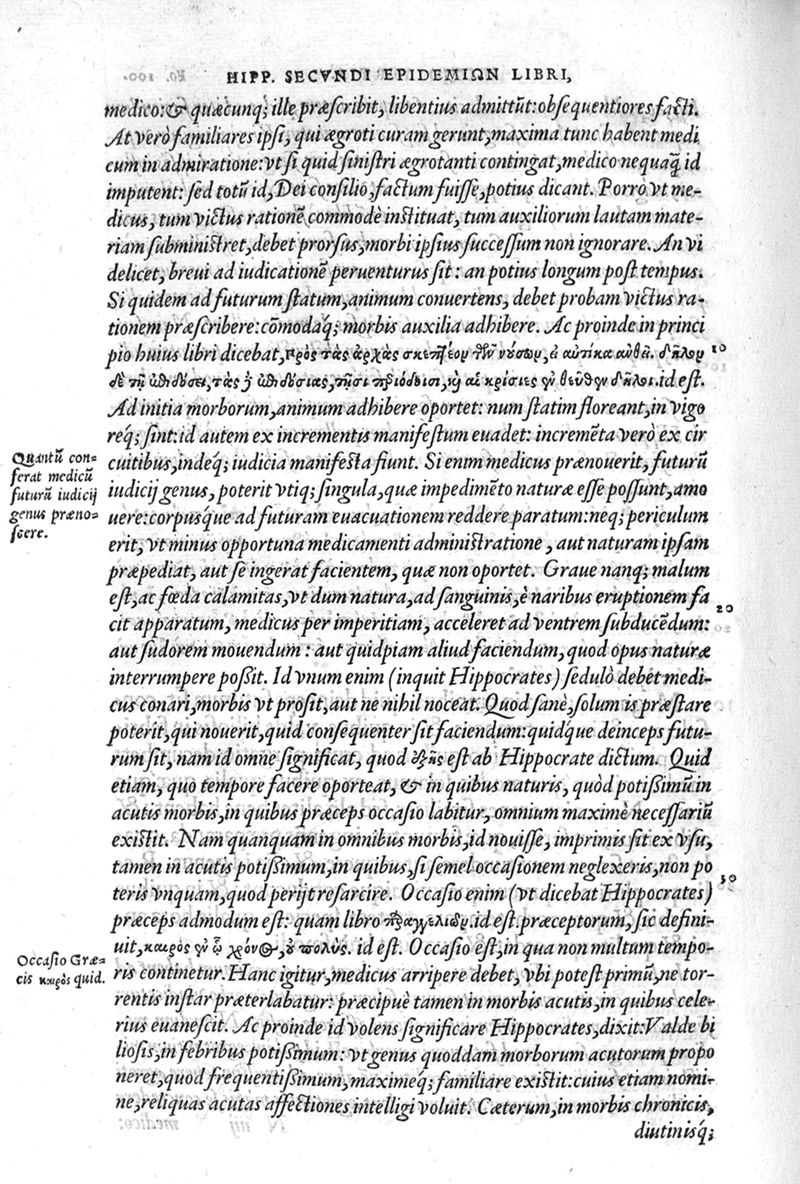 HIPP. SECVNDI EPIDEMIΩN LIBRI,
medico: & quæcunq; ille præscribit, libentius admittūt: obsequentiores facti.
At verò familiares ipsi, qui ægroti curam gerunt, maxima tunc habent medi
cum in admiratione: vt si quid sinistri ægrotanti contingat, medico nequaq̃ id
imputent: sed totū id, Dei consilio, factum fuisse, potius dicant. Porrò vt me-
dicus, tum victus rationē commodè instituat, tum auxiliorum lautam mate-
riam subministret, debet prorsus, morbi ipsius successum non ignorare. An vi
delicet, breui ad iudicationē peruenturus sit: an potius longum post tempus.
Si quidem ad futurum statum, animum conuertens, debet probam victus ra-
tionem præscribere: cōmodaq́; morbis auxilia adhibere. Ac proinde in princi
pio huius libri dicebat, πρὸς τὰς ἀρχὰς σκεπτέον τῶν νούσων, εἰ αὐτίκα ἀνθεῖ. δῆλον 10
δὲ τῇ ἐπιδόσει, τὰς δ' ἐπιδόσιας, τῇσι περιόδοισι, καὶ αἱ κρίσιες ἐντεῦθεν δῆλοι. id est.
Ad initia morborum, animum adhibere oportet: num statim floreant, in vigo
req́; sint: id autem ex incrementis manifestum euadet: incremēta verò ex cir
cuitibus, indeq́; iudicia manifesta fiunt. Si enim medicus prænouerit, futurū
Quantū con-
ferat medicū
futurū iudicij
genus præno-
scere.
iudicij genus, poterit vtiq; singula, quæ impedimēto naturæ esse possunt, amo
uere: corpusq́ue ad futuram euacuationem reddere paratum: neq; periculum
erit, vt minus opportuna medicamenti administratione, aut naturam ipsam
præpediat, aut se ingerat facientem, quæ non oportet. Graue nanq; malum
est, ac fœda calamitas, vt dum natura, ad sanguinis, è naribus eruptionem fa 20
cit apparatum, medicus per imperitiam, acceleret ad ventrem subducēdum:
aut sudorem mouendum: aut quidpiam aliud faciendum, quod opus naturæ
interrumpere possit. Id vnum enim (inquit Hippocrates) sedulò debet medi-
cus conari, morbis vt prosit, aut ne nihil noceat. Quod sanè, solum is præstare
poterit, qui nouerit, quid consequenter sit faciendum: quidq́ue deinceps futu-
rum sit, nam id omne significat, quod ἑξῆς est ab Hippocrate dictum. Quid
etiam, quo tempore facere oporteat, & in quibus naturis, quòd potissimū in
acutis morbis, in quibus præceps occasio labitur, omnium maximè necessariū
existit. Nam quanquam in omnibus morbis, id nouisse, imprimis sit ex vsu,
tamen in acutis potissimum, in quibus, si semel occasionem neglexeris, non po
teris vnquam, quod perijt resarcire. Occasio enim (vt dicebat Hippocrates) 30
præceps admodum est: quam libro παραγγελιῶν. id est. præceptorum, sic defini-
uit, καιρὸς ἐν ᾧ χρόνος, οὐ πολὺς. id est. Occasio est, in qua non multum tempo-
Occasio Græ-
cis καιρὸς quid.
ris continetur. Hanc igitur, medicus arripere debet, vbi potest primū, ne tor-
rentis instar præterlabatur: præcipuè tamen in morbis acutis, in quibus cele-
rius euanescit. Ac proinde id volens significare Hippocrates, dixit: Valde bi
liosis, in febribus potissimum: vt genus quoddam morborum acutorum propo
neret, quod frequentissimum, maximeq́; familiare existit: cuius etiam nomi-
ne, reliquas acutas affectiones intelligi voluit. Cæterum, in morbis chronicis,
diutinisq́;